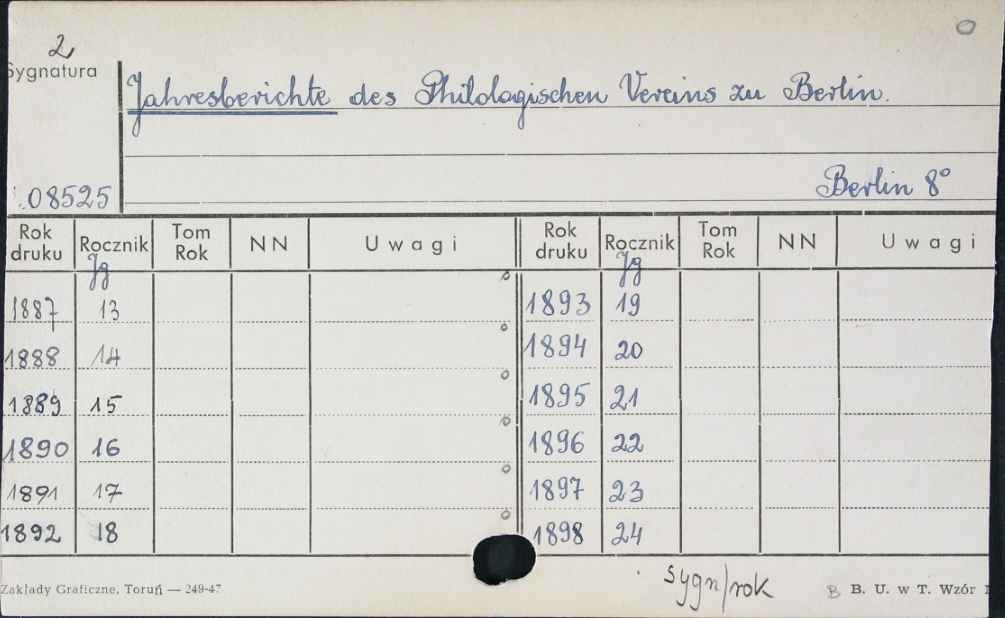 2
Sygnatura
Jahresberichte des Philologischen Vereins zu Berlin.
08525
Berlin 8°
Rok druku Rocznik Tom Rok NN Uwagi Rok druku Rocznik Tom Rok NN Uwagi
Jg Jg
1887 13 1893 19
1888 14 1894 20
1889 15 1895 21
1890 16 1896 22
1891 17 1897 23
1892 18 1898 24
sygn/rok
Zakłady Graficzne, Toruń — 249-47 B B. U. w T. Wzór